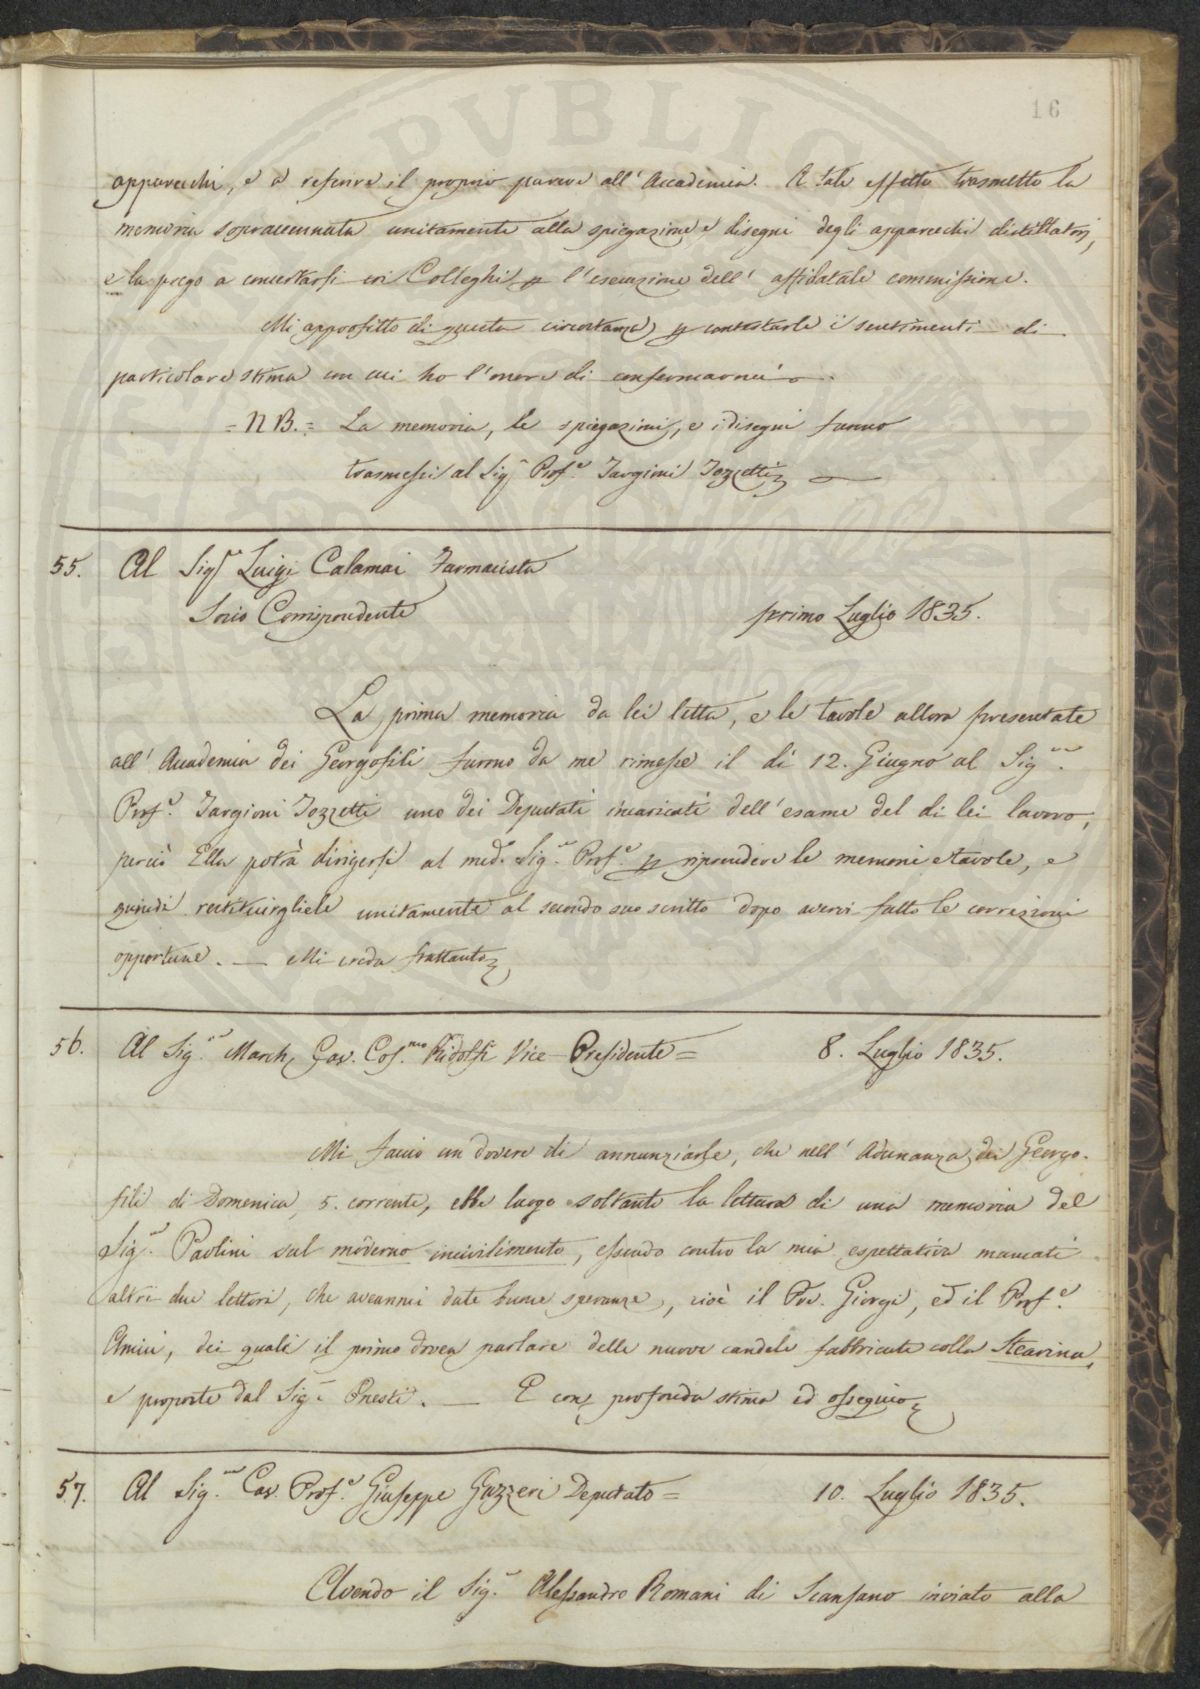 16
apparecchi, e a referire il proprio parere all'Accademia. A tale effetto trasmetto la
memoria sopraccennata unitamente alla spiegazione e disegni degli apparecchi distillatorj,
e la prego a concertarsi coi Colleghi p l'esecuzione dell'affidatale commissione.
Mi approfitto di questa circostanza p contestarle i sentimenti di
particolare stima con cui ho l'onore di confermarmi
= NB. = La memoria, le spiegazioni, e i disegni furono
trasmessi al Sigr Profe. Targioni Tozzetti
55. Al Sigr Luigi Calamai Farmacista
Socio Corrispondente primo Luglio 1835.
La prima memoria da lei letta, e le tavole allora presentate
all'Accademia dei Georgofili furono da me rimesse il dì 12. Giugno al Sig.
Profe. Targioni Tozzetti uno dei Deputati incaricati dell'esame del di lei lavoro,
perciò Ella potrà dirigersi al med. Sig. Profe. p riprendere le memorie e tavole, e
quindi restituirgliele unitamente al secondo suo scritto dopo avervi fatto le correzioni
opportune. — Mi creda frattanto
56. Al Sig. March. Cav. Cos.mo Ridolfi Vice-Presidente = 8. Luglio 1835.
Mi faccio un dovere di annunziarle, che nell'Adunanza dei Georgo-
fili di Domenica, 5. corrente, ebbe luogo soltanto la lettura di una memoria del
Sig. Paolini sul moderno incivilimento, essendo contro la mia espettativa mancati
altri due lettori, che aveanmi date buone speranze, cioè il Giorgi, ed il Profe.
Amici, dei quali il primo dovea parlare delle nuove candele fabbricate colla Stearina,
e proposte dal Sigr Onesti. — E con profonda stima ed ossequio
57. Al Sig. Cav. Profe. Giuseppe Gazzeri Deputato = 10. Luglio 1835.
Avendo il Sigr. Alessandro Romani di Scansano inviato alla